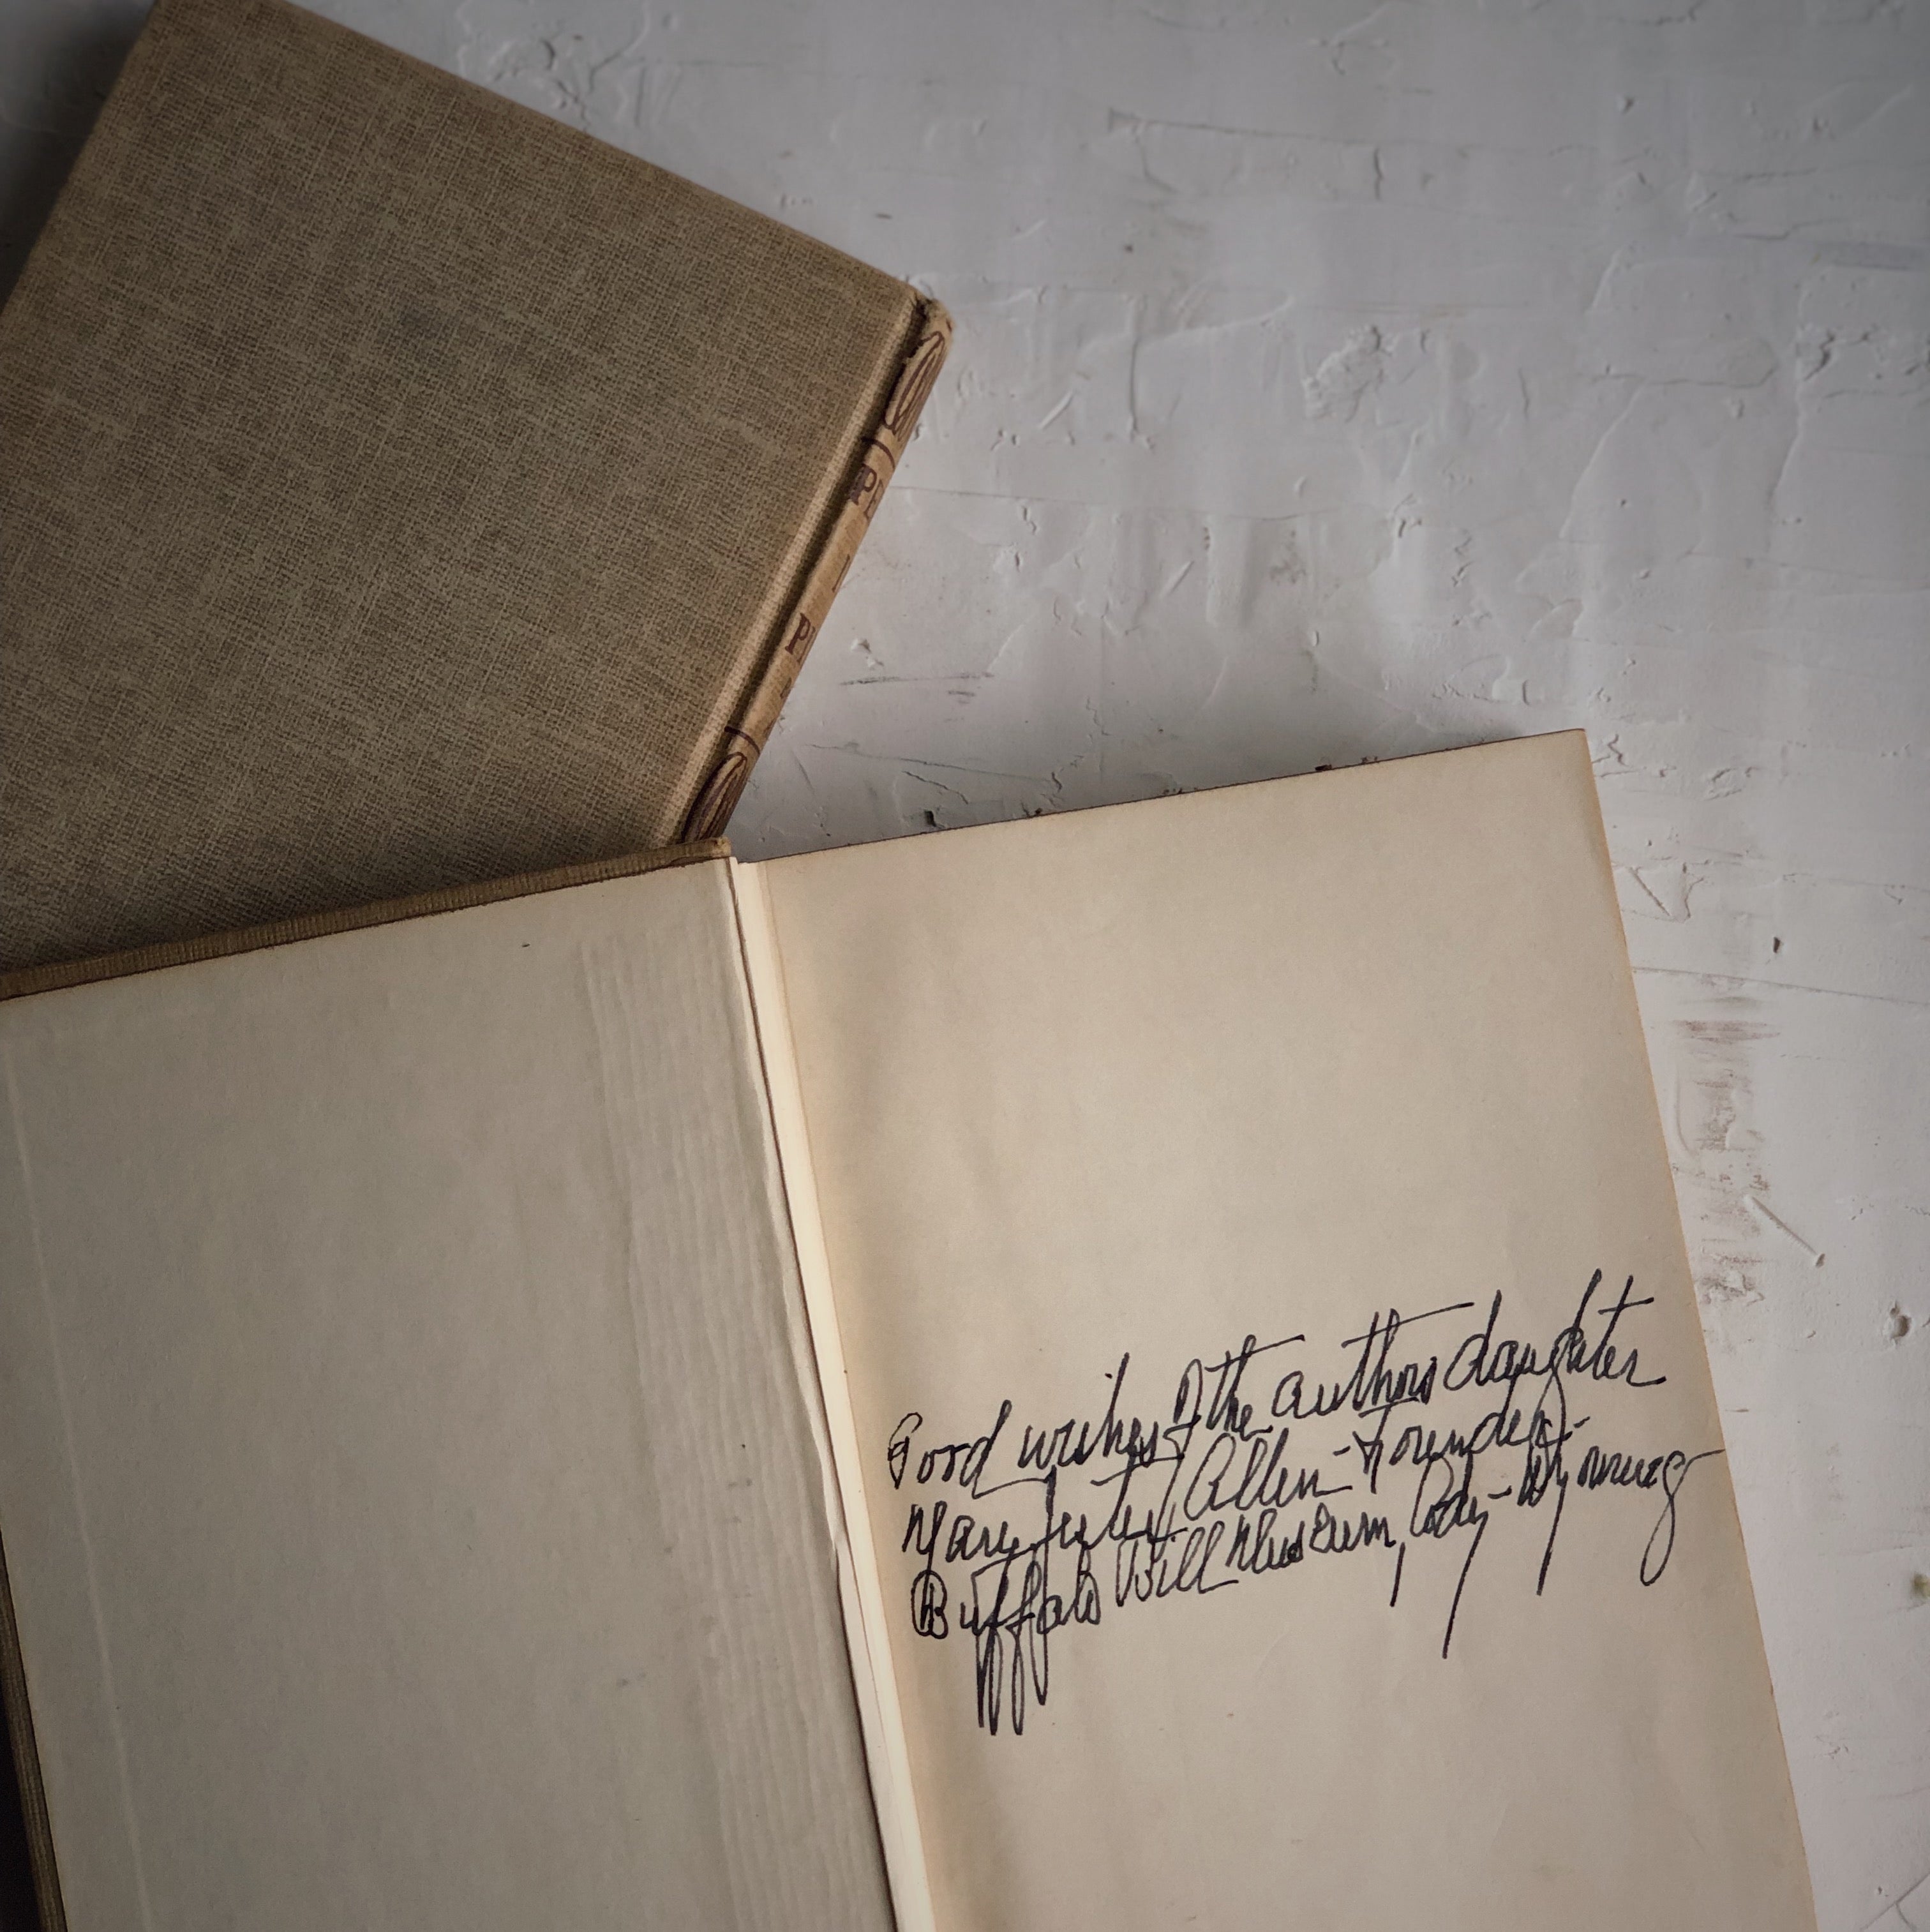 P
P
Good wishes of the authors daughter
Mary Jester Allen - Founder -
Buffalo Bill Museum, Cody - Wyoming